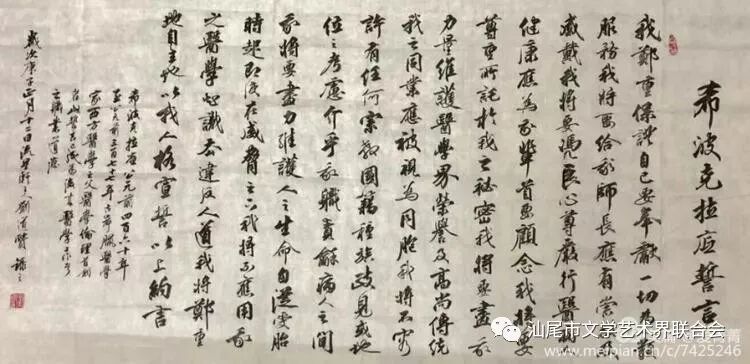 希波克拉底誓言
我鄭重保證自己要奉獻一切為
服務我將要給我師長應有崇
感戴我將要憑良心尊嚴行醫病
健康應為我首要顧念我將要
尊重所託於我之秘密我將要盡我
力量維護醫學界榮譽及高尚傳統
我之同業應被視為同胞我將不容
許有任何宗教國籍種族政見或地
位之考慮介乎我職責病人之間
我將要盡力維護人之生命自從受胎
時起即使在威脅之下我將不應用我
之醫學知識去違反人道我將鄭重
地自主地以我人格宣誓以上約言
希波克拉底公元前四百六十年
至公元前三百七十七年古希臘醫學
家西方醫學之父醫學倫理首創
歲次庚子正月十二日
汕尾市文学艺术界联合会
www.meipian.cn/c/7425246